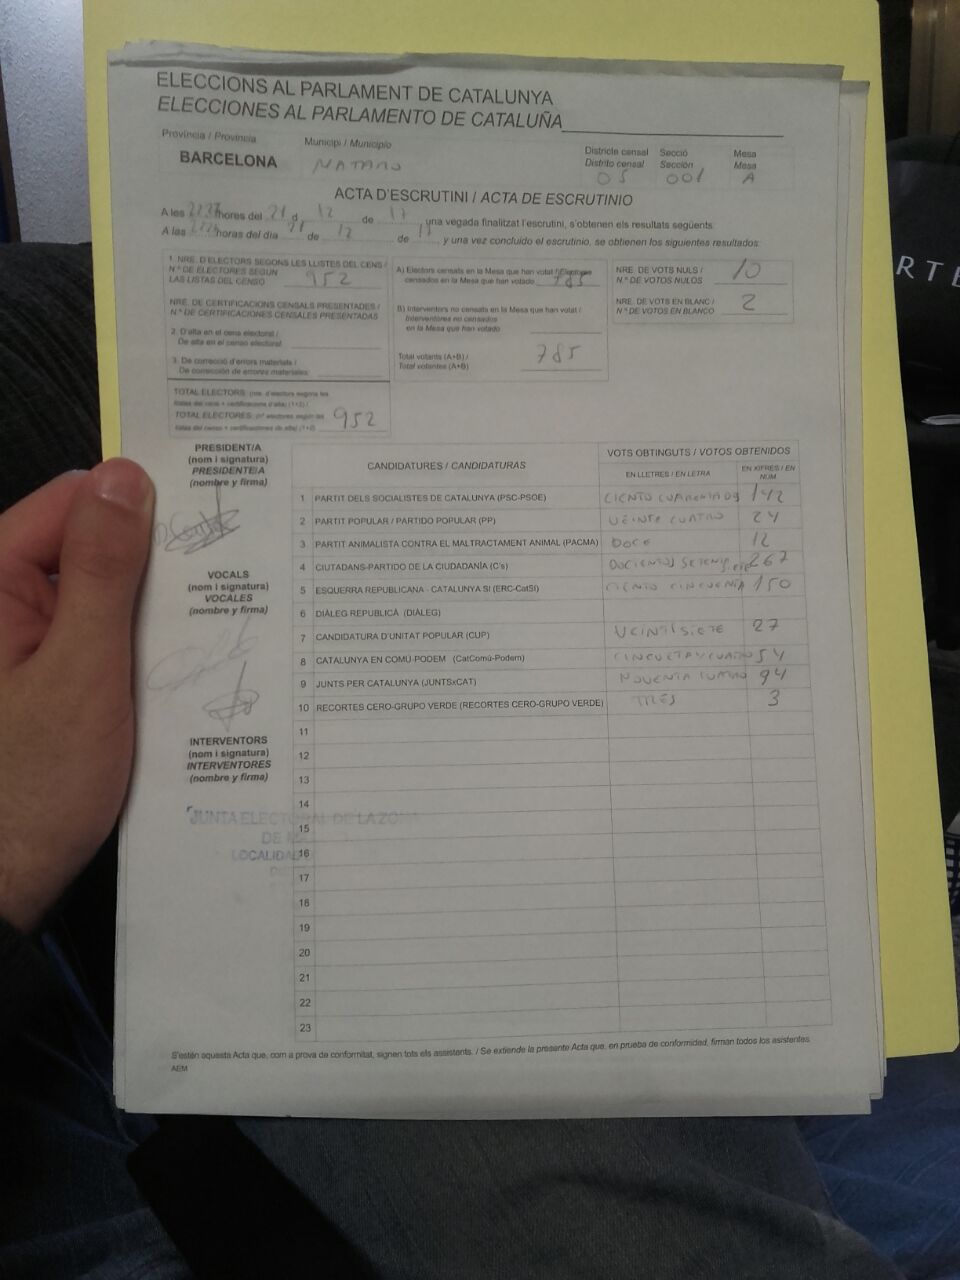 ELECCIONS AL PARLAMENT DE CATALUNYA
ELECCIONES AL PARLAMENTO DE CATALUÑA
Província / Provincia
Municipi / Municipio
Districte censal
Distrito censal
Secció
Sección
Mesa
Mesa
BARCELONA
MATARO
05
001
A
ACTA D'ESCRUTINI / ACTA DE ESCRUTINIO
A les hores del 21 d 12 de 17 una vegada finalitzat l'escrutini, s'obtenen els resultats següents:
A las horas del día 21 de 12 de 17 y una vez concluido el escrutinio, se obtienen los siguientes resultados:
1. NRE. D'ELECTORS SEGONS LES LLISTES DEL CENS /
N.º DE ELECTORES SEGÚN
LAS LISTAS DEL CENSO
952
NRE. DE CERTIFICACIONS CENSALS PRESENTADES /
N.º DE CERTIFICACIONES CENSALES PRESENTADAS
2. D'alta en el cens electoral /
De alta en el censo electoral
3. De correcció d'errors materials /
De corrección de errores materiales:
TOTAL ELECTORS: (nre. d'electors segons les
llistes del cens + certificacions d'alta) (1+2) /
TOTAL ELECTORES: (nº electores según las
listas del censo + certificaciones de alta) (1+2)
952
A) Electors censats en la Mesa que han votat / Electores
censados en la Mesa que han votado
785
B) Interventors no censats en la Mesa que han votat /
Interventores no censados
en la Mesa que han votado
Total votants (A+B) /
Total votantes (A+B)
785
NRE. DE VOTS NULS /
N.º DE VOTOS NULOS
10
NRE. DE VOTS EN BLANC /
N.º DE VOTOS EN BLANCO
2
PRESIDENT/A
(nom i signatura)
PRESIDENTE/A
(nombre y firma)
VOCALS
(nom i signatura)
VOCALES
(nombre y firma)
INTERVENTORS
(nom i signatura)
INTERVENTORES
(nombre y firma)
JUNTA ELECTORAL DE LA ZONA
DE
LOCALIDAD
CANDIDATURES / CANDIDATURAS
VOTS OBTINGUTS / VOTOS OBTENIDOS
EN LLETRES / EN LETRA
EN XIFRES / EN NÚM.
1 PARTIT DELS SOCIALISTES DE CATALUNYA (PSC-PSOE) CIENTO CUARENTADOS 142
2 PARTIT POPULAR / PARTIDO POPULAR (PP) VEINTE CUATRO 24
3 PARTIT ANIMALISTA CONTRA EL MALTRACTAMENT ANIMAL (PACMA) DOCE 12
4 CIUTADANS-PARTIDO DE LA CIUDADANÍA (C's) 267
5 ESQUERRA REPUBLICANA - CATALUNYA SÍ (ERC-CatSí) CIENTO CINCUENTA 150
6 DIÀLEG REPUBLICÀ (DIÀLEG)
7 CANDIDATURA D'UNITAT POPULAR (CUP) VEINTISIETE 27
8 CATALUNYA EN COMÚ-PODEM (CatComú-Podem) CINCUETAYCUATRO 54
9 JUNTS PER CATALUNYA (JUNTSxCAT) NOVENTA CUATRO 94
10 RECORTES CERO-GRUPO VERDE (RECORTES CERO-GRUPO VERDE) TRES 3
11
12
13
14
15
16
17
18
19
20
21
22
23
S'estén aquesta Acta que, com a prova de conformitat, signen tots els assistents. / Se extiende la presente Acta que, en prueba de conformidad, firman todos los asistentes.
AEM
RTE